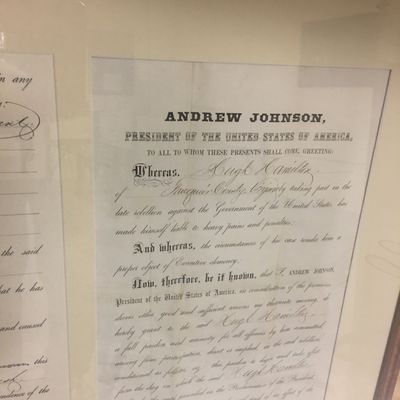 in any
the said
that he has
and caused
this
pendence of the
ANDREW JOHNSON,
PRESIDENT OF THE UNITED STATES OF AMERICA,
TO ALL TO WHOM THESE PRESENTS SHALL COME, GREETING:
Whereas, Hugh Hamilton
of Fauquier County Virginia by taking part in the
late rebellion against the Government of the United States, has
made himself liable to heavy pains and penalties;
And whereas, the circumstances of his case render him a
proper object of Executive clemency;
Now, therefore, be it known, that I, ANDREW JOHNSON,
President of the United States of America, in consideration of the premises,
divers other good and sufficient reasons me thereunto moving, do
hereby grant to the said Hugh Hamilton
a full pardon and amnesty for all offences by him committed,
arising from participation, direct or implied, in the said rebellion,
conditioned as follows:
from the day on which the said Hugh Hamilton
the Proclamation of the President